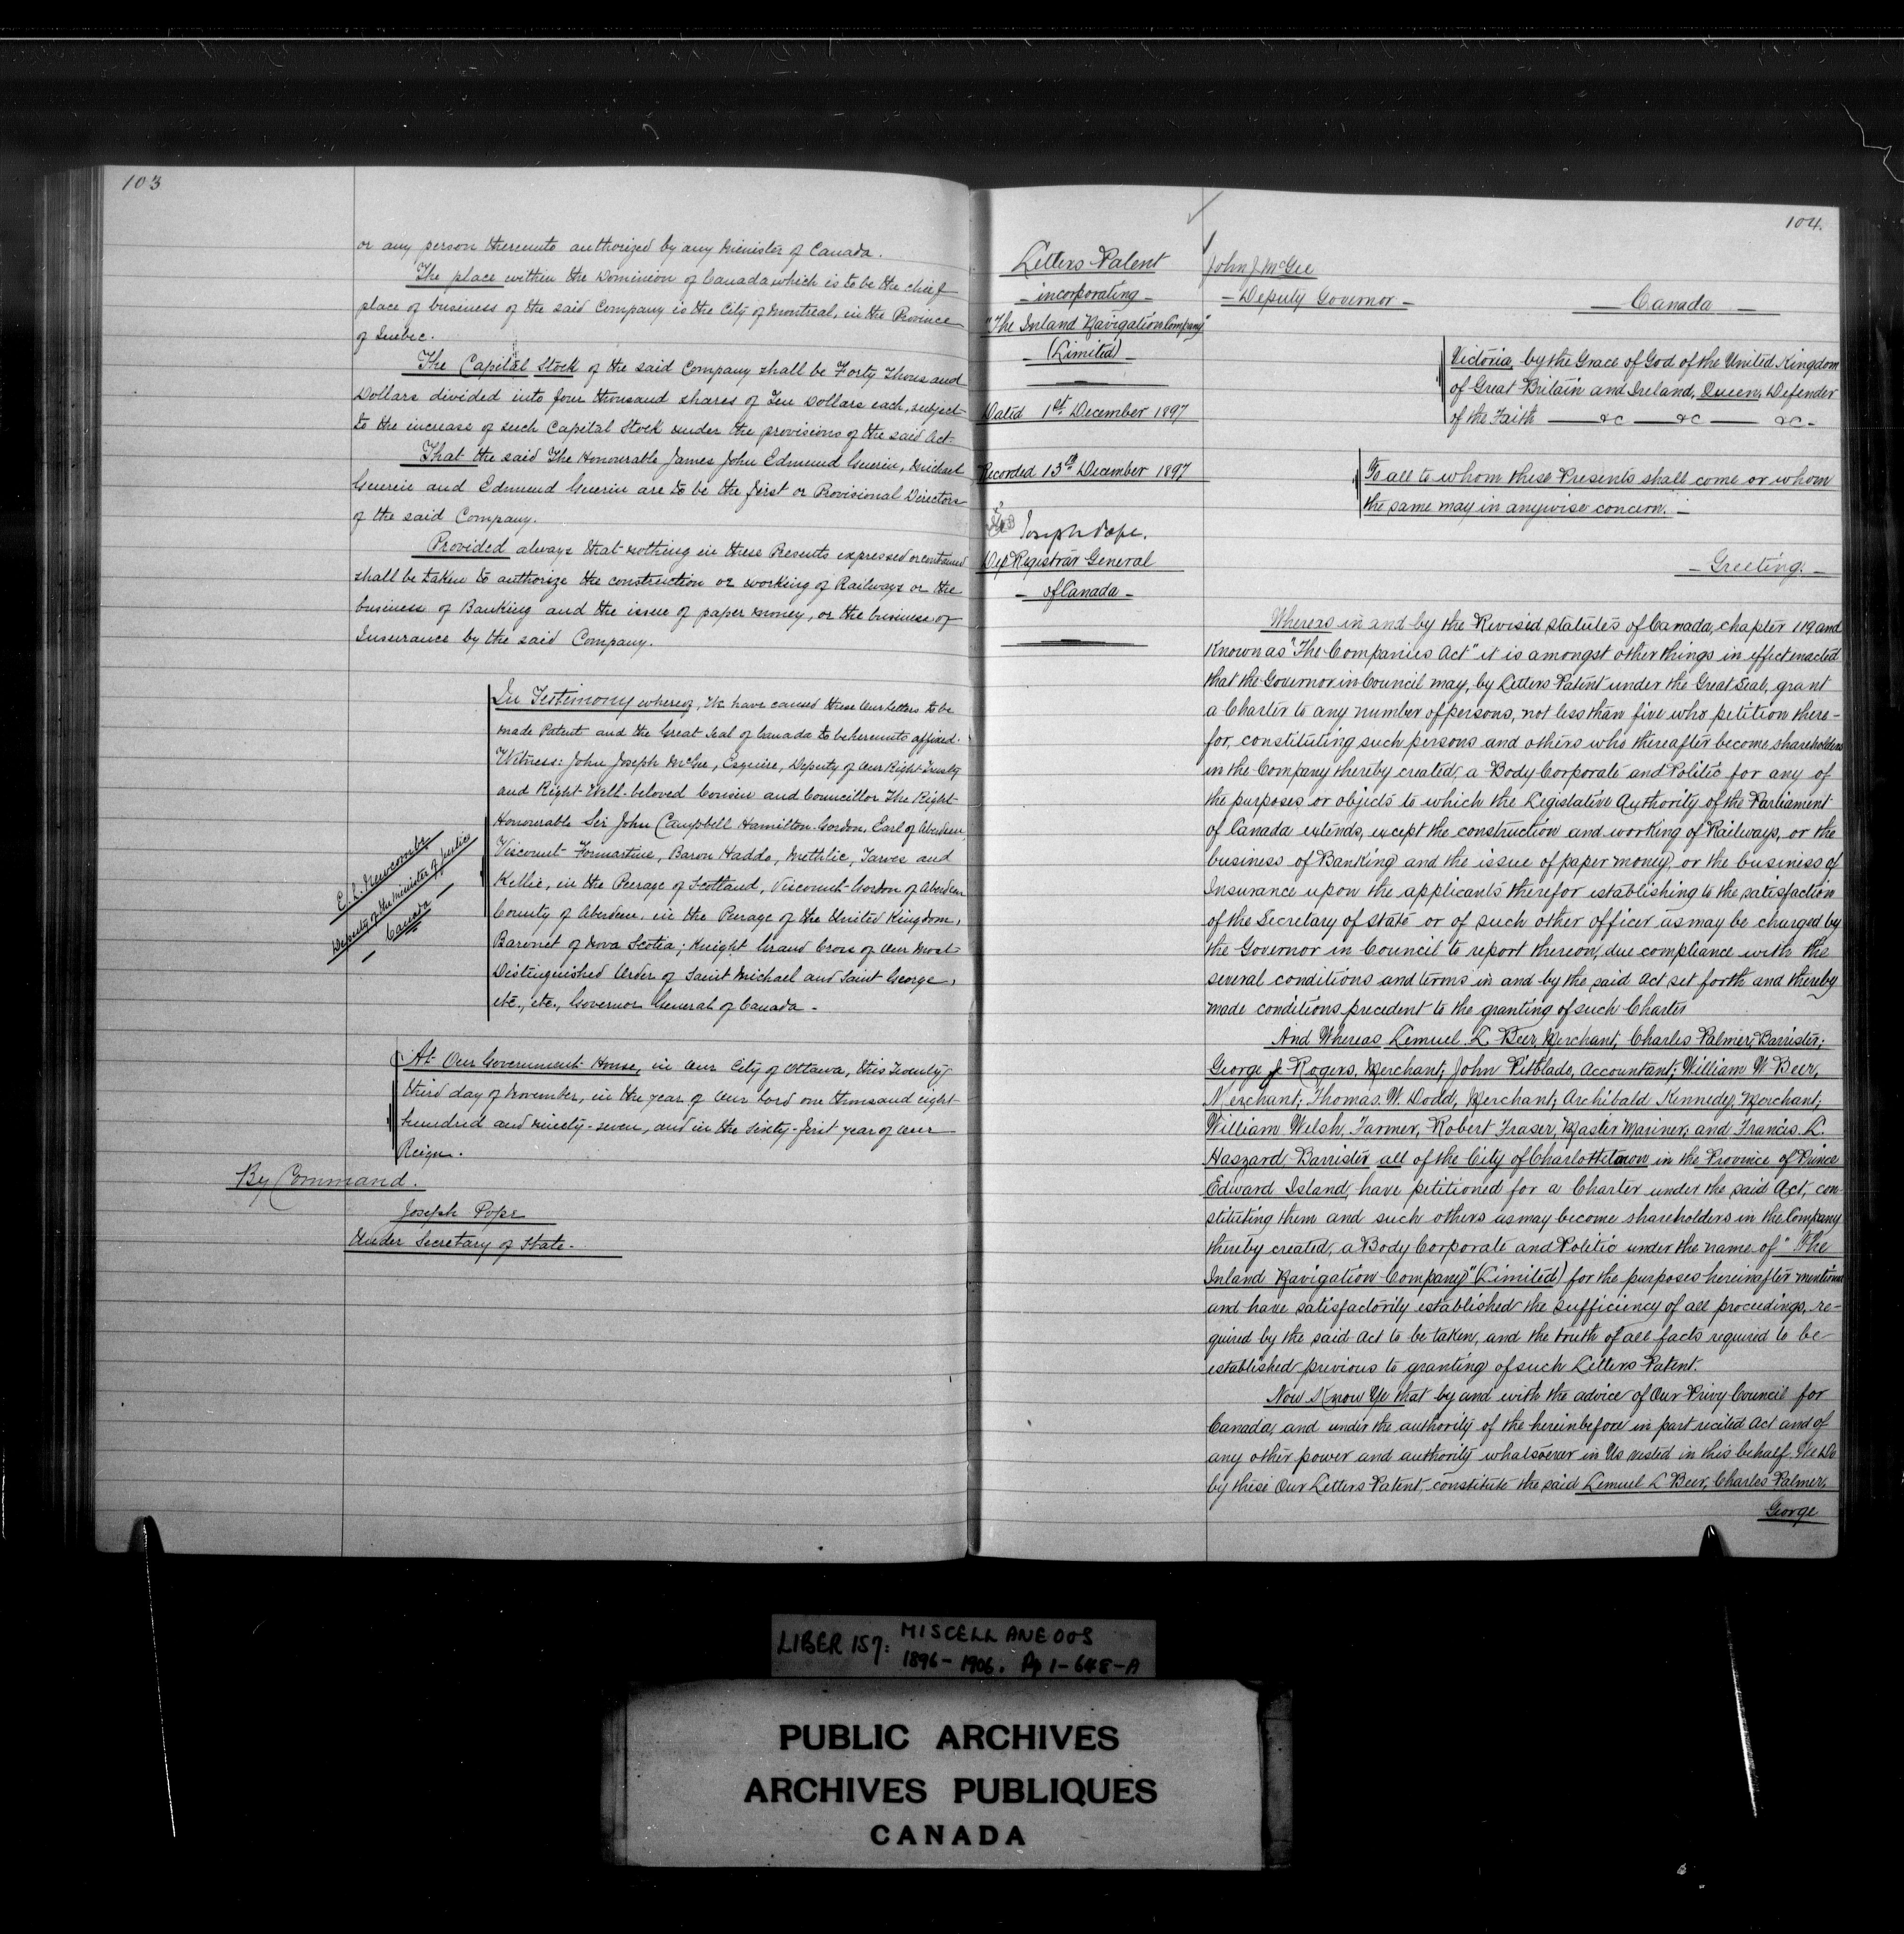 103
or any person thereunto authorized by any Minister of Canada.
The place within the Dominion of Canada which is to be the chief
place of business of the said Company is the City of Montreal, in the Province
of Quebec.
The Capital Stock of the said Company shall be Forty Thousand
Dollars divided into four thousand shares of Ten Dollars each, subject
to the increase of such Capital Stock under the provisions of the said Act.
That the said The Honourable James John Edmund Guerin, Michael
Guerin and Edmund Guerin are to be the first or Provisional Directors
of the said Company.
Provided always that nothing in these Presents expressed or contained
shall be taken to authorize the construction or working of Railways or the
business of Banking and the issue of paper money, or the business of
Insurance by the said Company.
In Testimony whereof, We have caused these Our Letters to be
made Patent and the Great Seal of Canada to be hereunto affixed.
Witness: John Joseph McGee, Esquire, Deputy of Our Right Trusty
and Right Well-beloved Cousin and Councillor The Right
Honourable Sir John Campbell Hamilton-Gordon, Earl of Aberdeen,
Viscount Formartine, Baron Haddo, Methlic, Tarves and
Kellie, in the Peerage of Scotland, Viscount Gordon of Aberdeen
County of Aberdeen, in the Peerage of the United Kingdom,
Baronet of Nova Scotia; Knight Grand Cross of Our Most
Distinguished Order of Saint Michael and Saint George,
etc., etc., Governor General of Canada -
E. L. Newcombe
Deputy of the Minister of Justice
- Canada -
At Our Government House, in Our City of Ottawa, this Twenty-
third day of November, in the year of Our Lord one thousand eight
hundred and ninety-seven, and in the Sixty-first year of Our
Reign.
By Command.
Joseph Pope
Under Secretary of State -
104.
Letters Patent
- incorporating -
"The Inland Navigation Company"
- (Limited) -
Dated 1st December 1897
Recorded 13th December 1897
Joseph Pope.
Dep Registrar General
- of Canada -
John J. McGee
- Deputy Governor -
- Canada -
Victoria, by the Grace of God of the United Kingdom
of Great Britain and Ireland, Queen, Defender
of the Faith — &c — &c — &c -
To all to whom these Presents shall come or whom
the same may in anywise concern. -
- Greeting: -
Whereas in and by the Revised Statutes of Canada, chapter 119 and
Known as "The Companies Act" it is amongst other things in effect enacted
that the Governor in Council may, by Letters Patent under the Great Seal, grant
a Charter to any number of persons, not less than five who petition there-
for, constituting such persons and others who thereafter become shareholders
in the Company thereby created, a Body Corporate and Politic for any of
the purposes or objects to which the Legislative Authority of the Parliament
of Canada extends, except the construction and working of Railways, or the
business of Banking and the issue of paper money, or the business of
Insurance upon the applicants therefor establishing to the satisfaction
of the Secretary of State or of such other officer as may be charged by
the Governor in Council to report thereon, due compliance with the
several conditions and terms in and by the said Act set forth and thereby
made conditions precedent to the granting of such Charter
And Whereas Lemuel L. Beer, Merchant, Charles Palmer, Barrister;
George J. Rogers, Merchant; John Pitblado, Accountant; William W. Beer,
Merchant; Thomas. W. Dodd, Merchant; Archibald Kennedy, Merchant;
William Welsh, Farmer, Robert Fraser, Master Mariner; and Francis. L.
Haszard Barrister all of the City of Charlottetown in the Province of Prince
Edward Island, have petitioned for a Charter under the said Act, con-
stituting them and such others as may become shareholders in the Company
thereby created, a Body Corporate and Politic under the name of "The
Inland Navigation Company" (Limited) for the purposes hereinafter mentioned
and have satisfactorily established the sufficiency of all proceedings, re-
quired by the said Act to be taken, and the truth of all facts required to be
established previous to granting of such Letters Patent.
Now Know Ye that by and with the advice of Our Privy Council for
Canada, and under the authority of the hereinbefore in part recited Act and of
any other power and authority whatsoever in Us vested in this behalf We Do
by these Our Letters Patent, constitute the said Lemuel L Beer, Charles Palmer,
George
LIBER 157: MISCELLANEOUS
1896-1906. Pp 1-648-A
PUBLIC ARCHIVES
ARCHIVES PUBLIQUES
CANADA